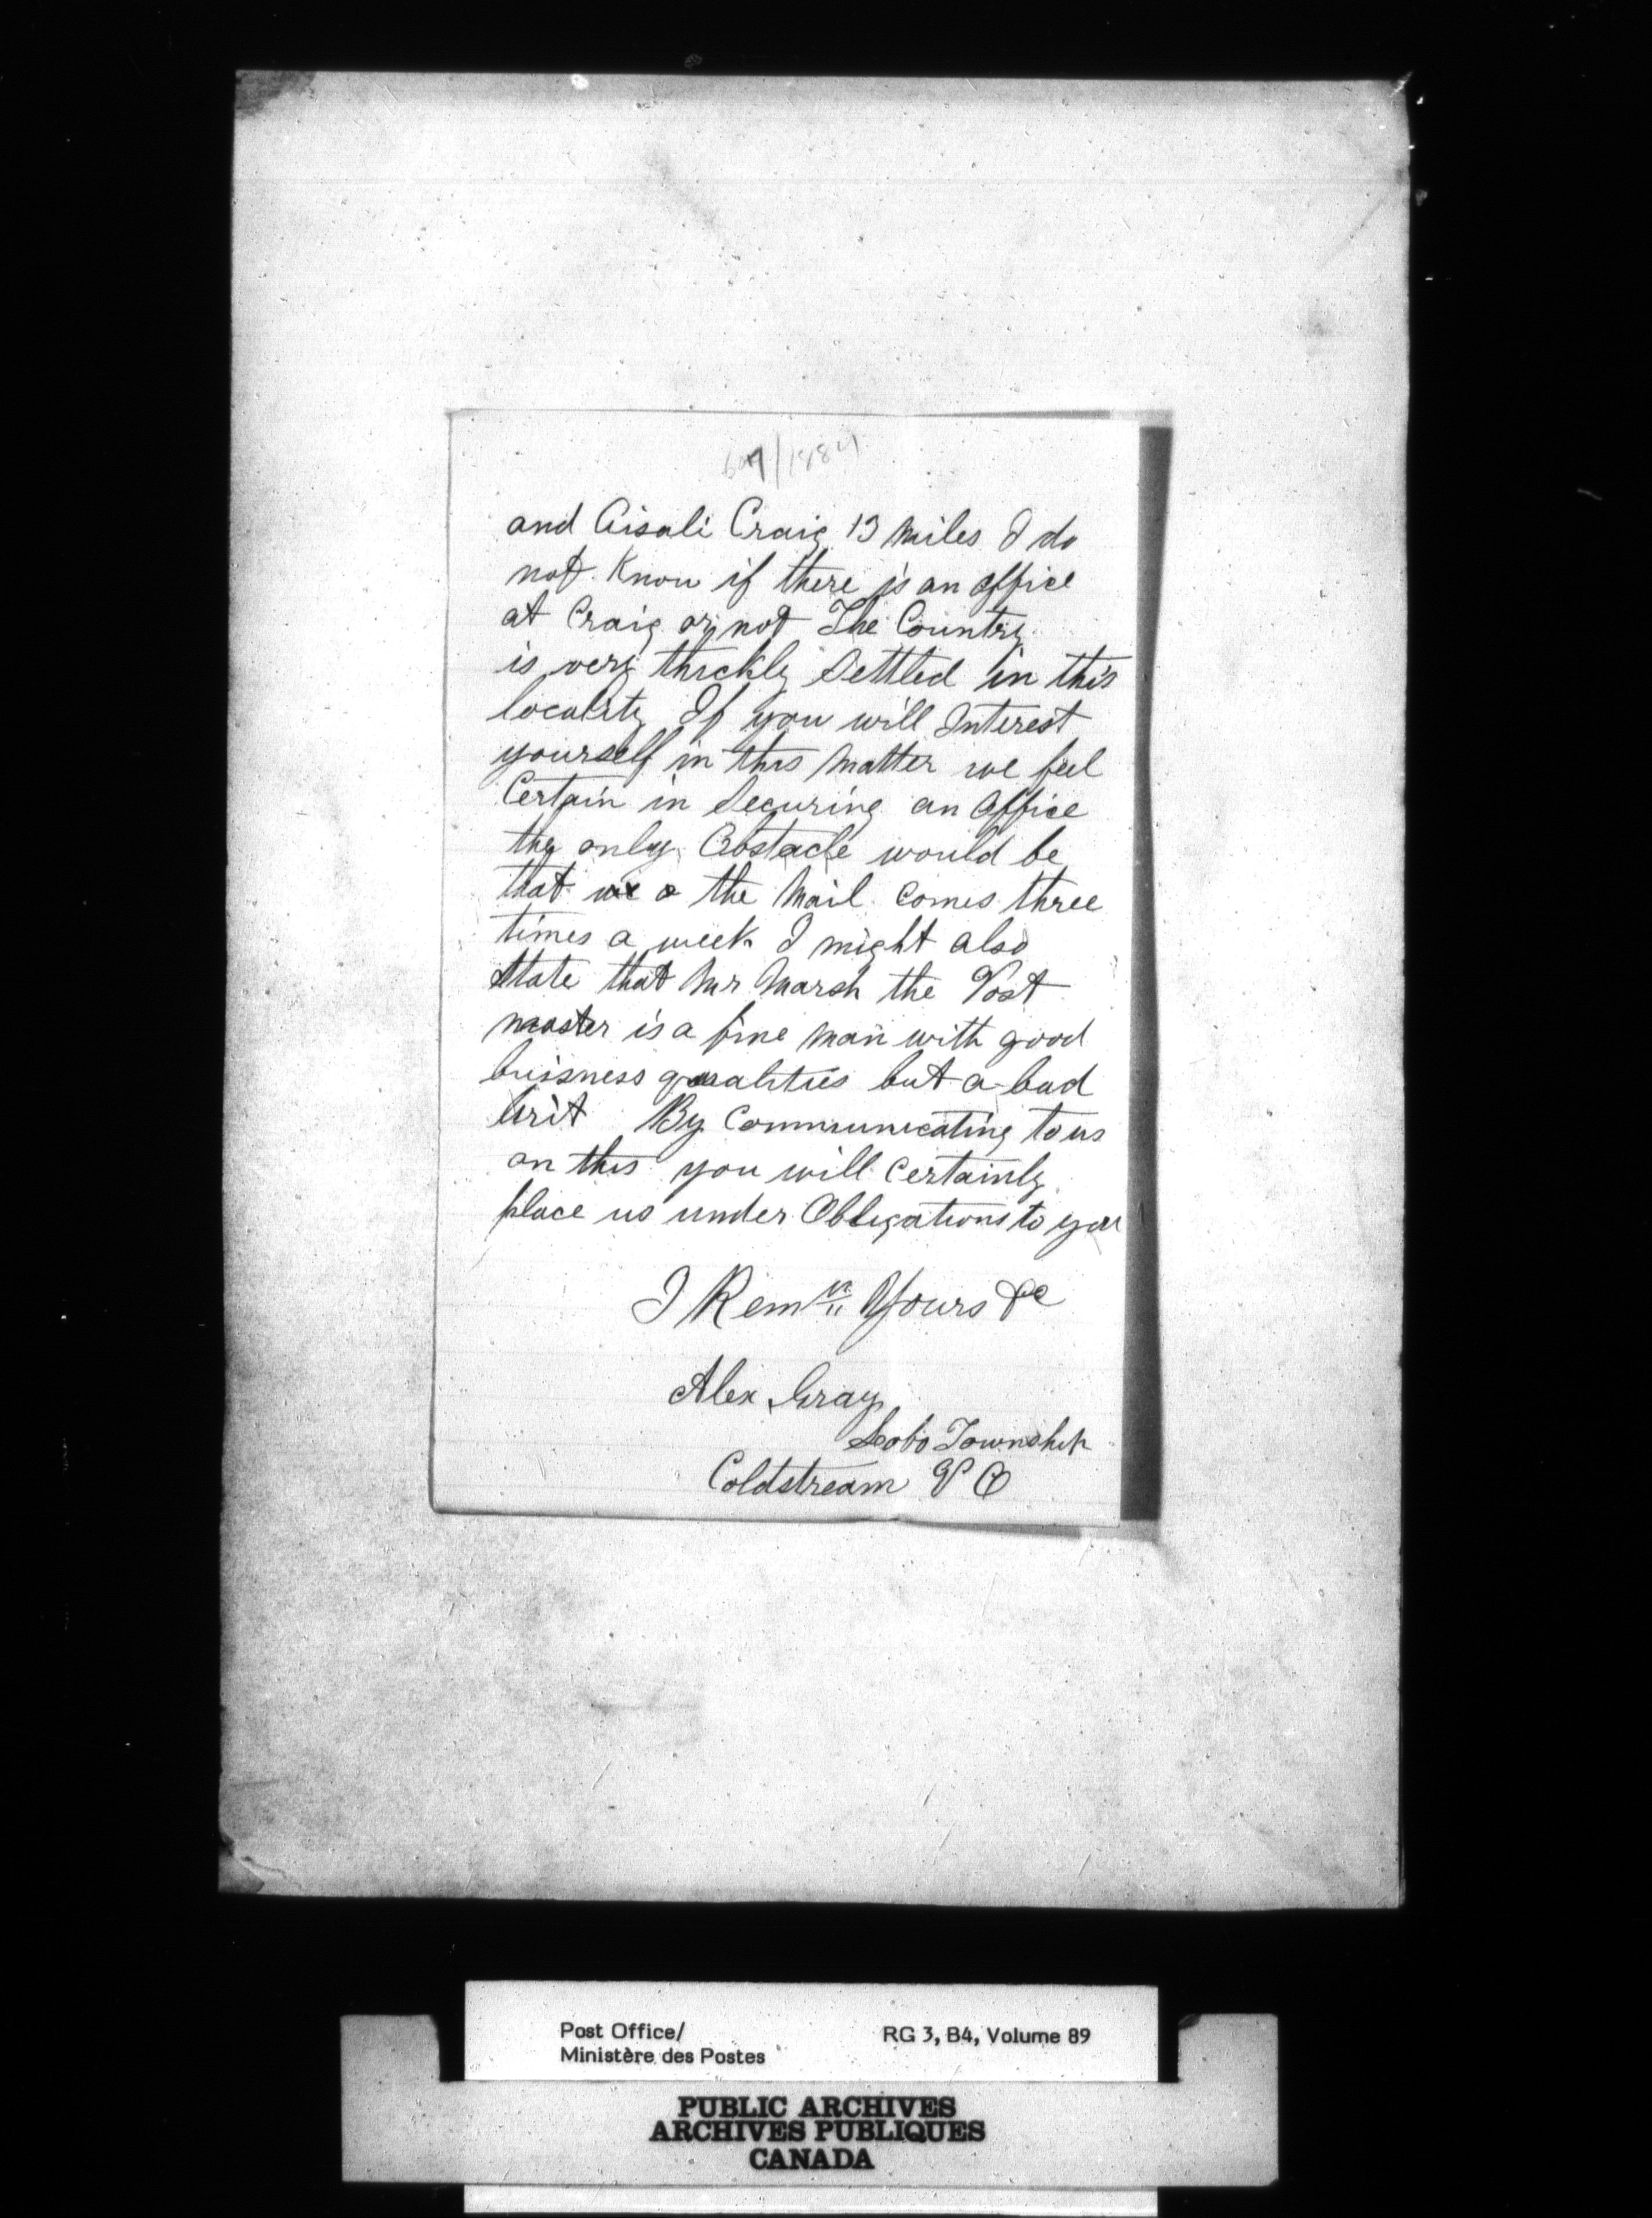 /1884
and Aisali Craig 13 Miles I do
not Know if there is an office
at Craig or not The Country
is very thickly Settled in this
locality If you will Interest
yourself in this Matter we feel
Certain in Securing an Office
the only Obstacle would be
that we a the Mail comes three
times a week I might also
State that Mr Marsh the Post
master is a fine man with good
buisness quealities but a bad
Grit By Communicating to us
on this you will certainly
place us under Obligations to you
I Remn Yours &c
Alex Gray
Lobo Township
Coldstream P O
Post Office/ RG 3, B4, Volume 89
Ministère des Postes
PUBLIC ARCHIVES
ARCHIVES PUBLIQUES
CANADA